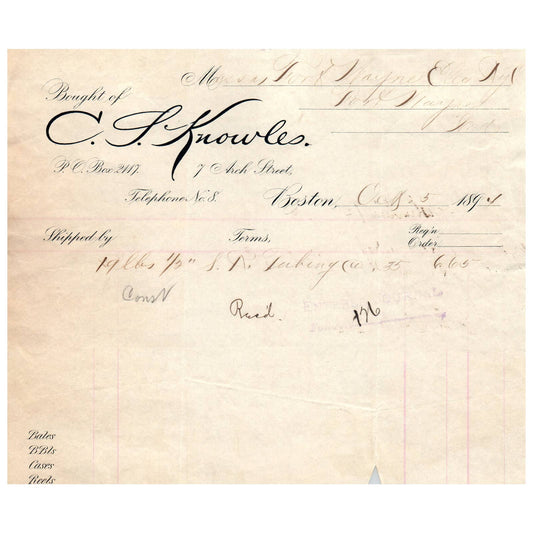 Messrs Fort Wayne Elec Ry
Bought of
Fort Wayne
Ind
C. S. Knowles.
P.O. Box 2117. 7 Arch Street,
Telephone No. 8. Boston, Oct 5 1894
Shipped by Terms, Reg'n
Order
19 lbs 1/2" S. R. Tubing @ 35 6.65
Const
Rec'd. 126
Bales
BBls
Cases
Reels